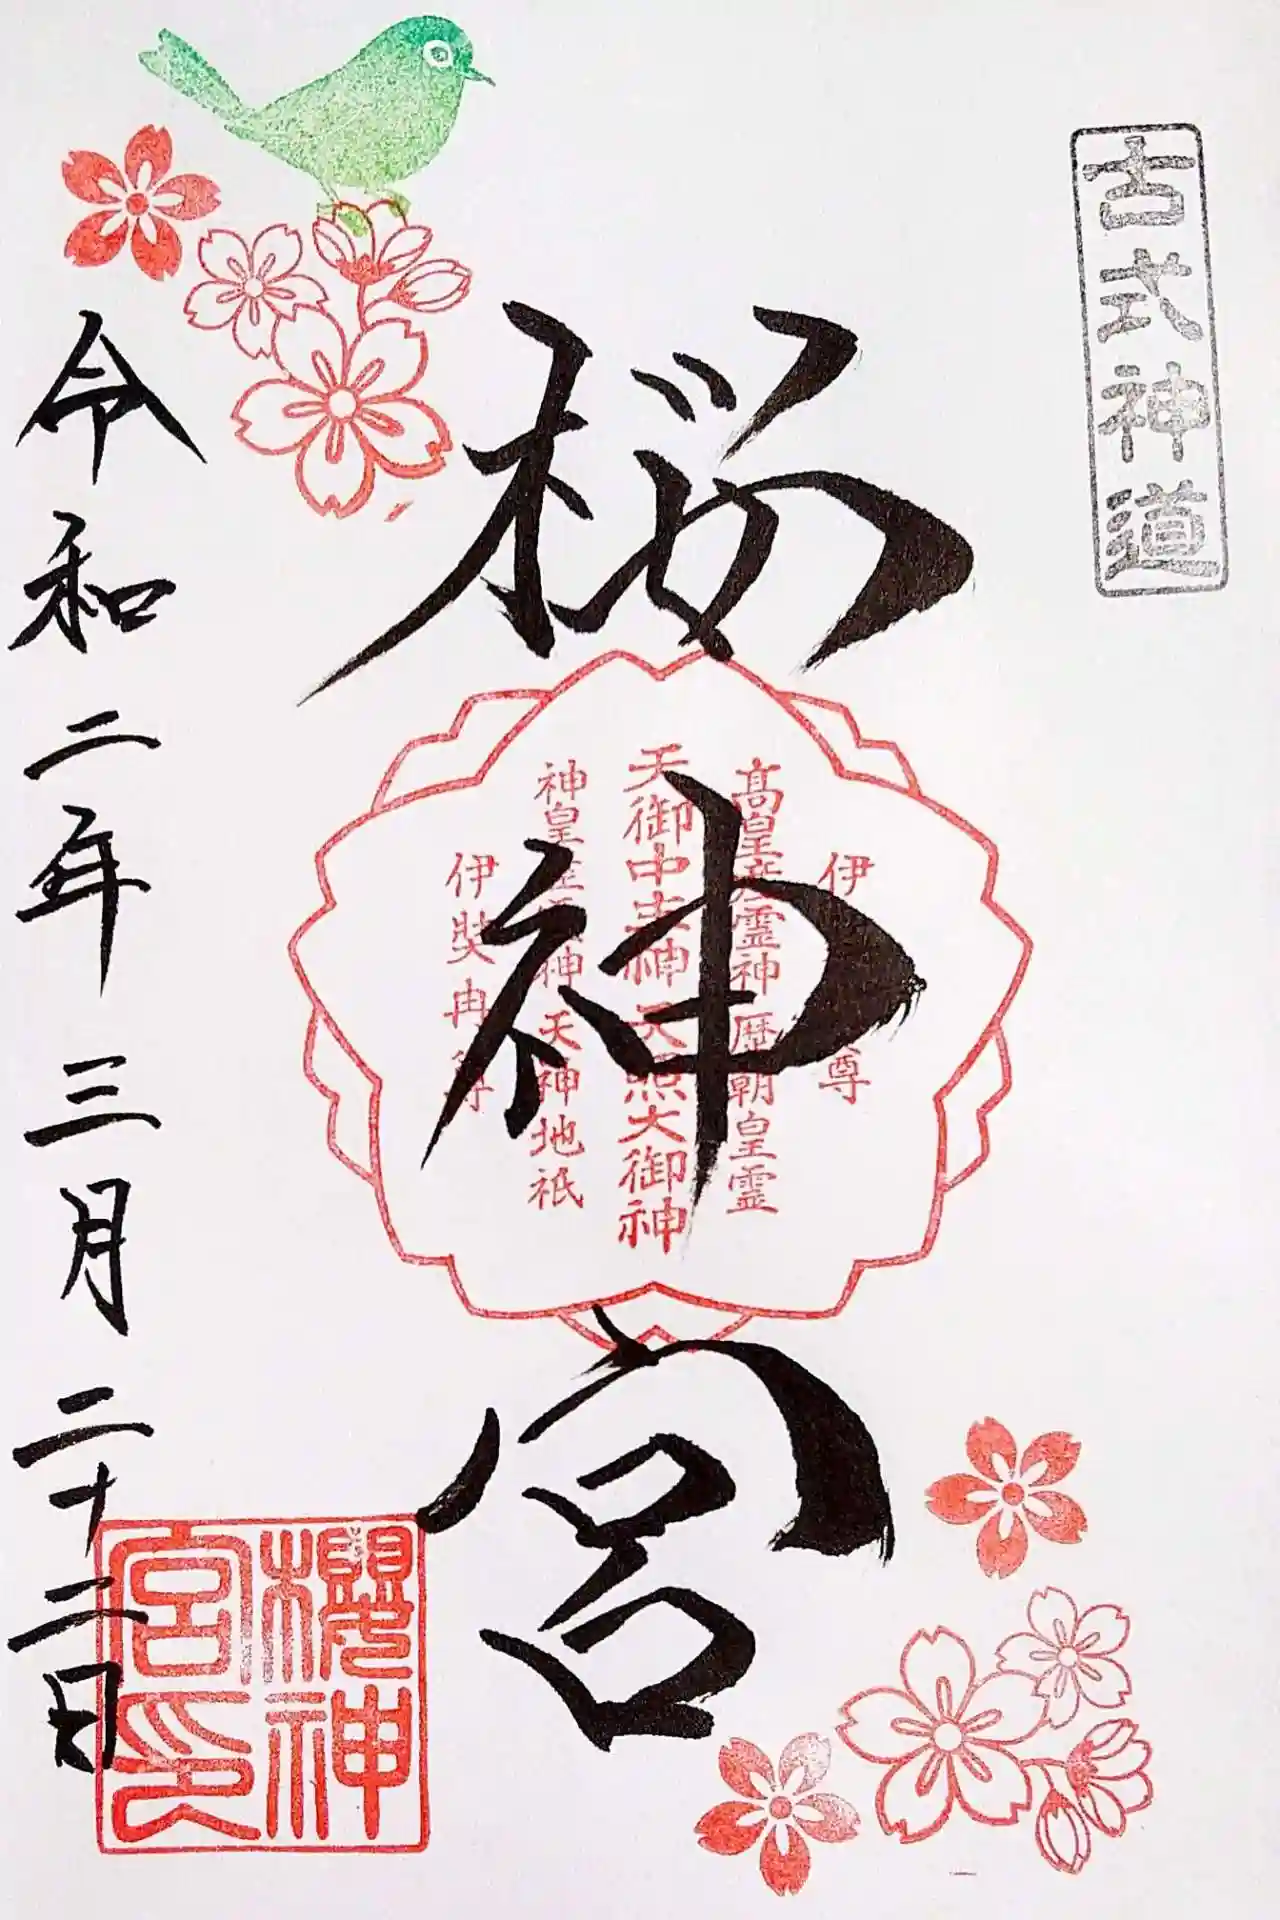 古式神道
桜神宮
伊 尊
高皇産霊神 歴朝皇霊
天御中主神 天照大御神
神皇産 神 天神地祇
伊弉冉尊
令和二年三月二十二日
櫻神
宮印